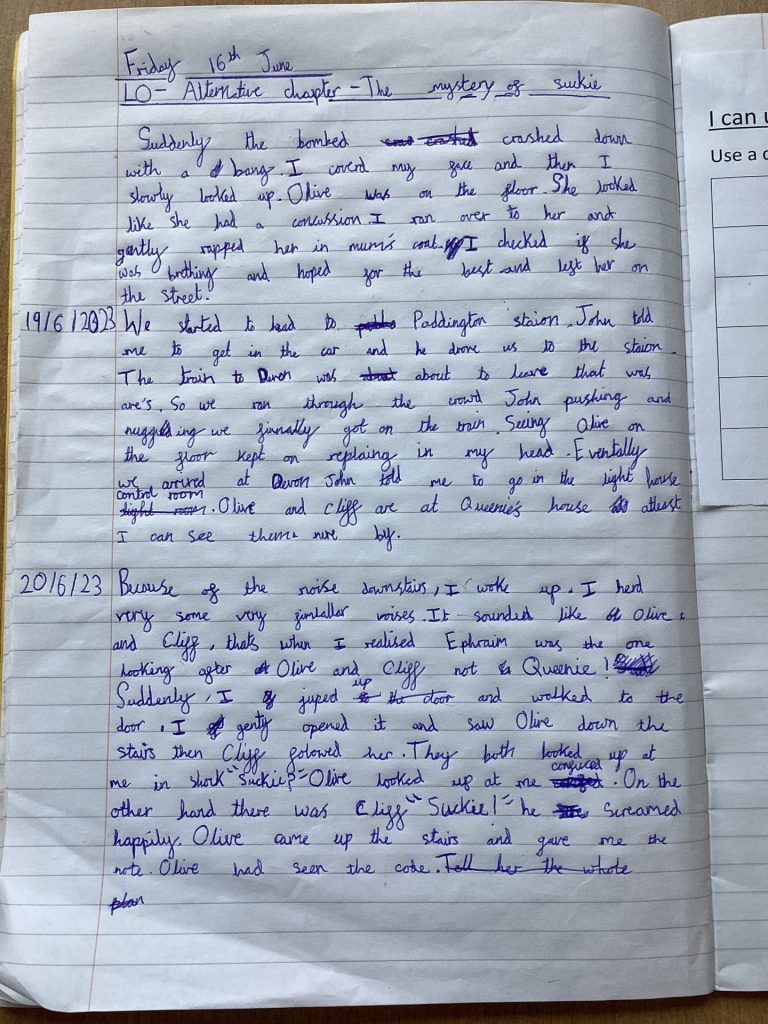 Friday 16th June
LO- Alternative chapter - The mystery of suckie
Suddenly the bombed crashed down
with a bang. I coverd my face and then I
slowly looked up. Olive was on the floor. She looked
like she had a concussion. I ran over to her and
gently rapped her in mum's coat. I checked if she
was brething and hoped for the best and left her on
the street.
19/6/2023 We started to head to Paddington staion. John told
me to get in the car and he drove us to the staion.
The train to Devon was about to leave that was
are's. So we ran through the crowd John pushing and
nuggding we finnally got on the train. Seeing Olive on
the floor kept on replaing in my head. Eventally
we arrived at Devon John told me to go in the light house
control room
light room. Olive and Cliff are at Queenie's house atleast
I can see them nere by.
20/6/23 Because of the noise downstairs, I woke up. I herd
very some very fimlallar voises. It sounded like Olive
and Cliff, thats when I realised Ephraim was the one
looking after Olive and Cliff not Queenie!
Suddenly, I juped up to the door and walked to the
door. I genty opened it and saw Olive down the
stairs then Cliff folowed her. They both looked up at
me in shork "Suckie?" Olive looked up at me confuced. On the
other hand there was Cliff "Suckie!" he screamed
happily. Olive came up the stairs and gave me the
note. Olive had seen the code. Tell her the whole
plan
I can u
Use a